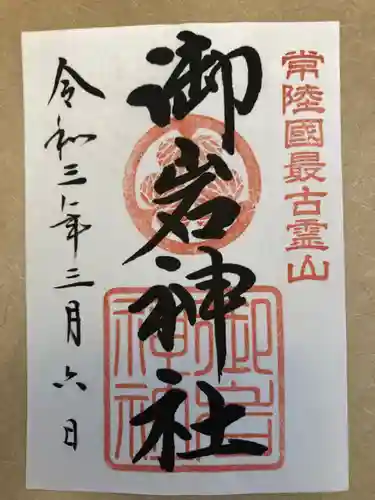 常陸國最古霊山
御岩神社
御岩神社
令和三年三月六日